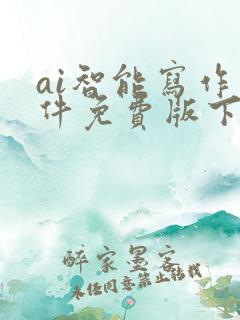 ai智能寫作
件免費版下
醉家墨客
未经同意禁止转载